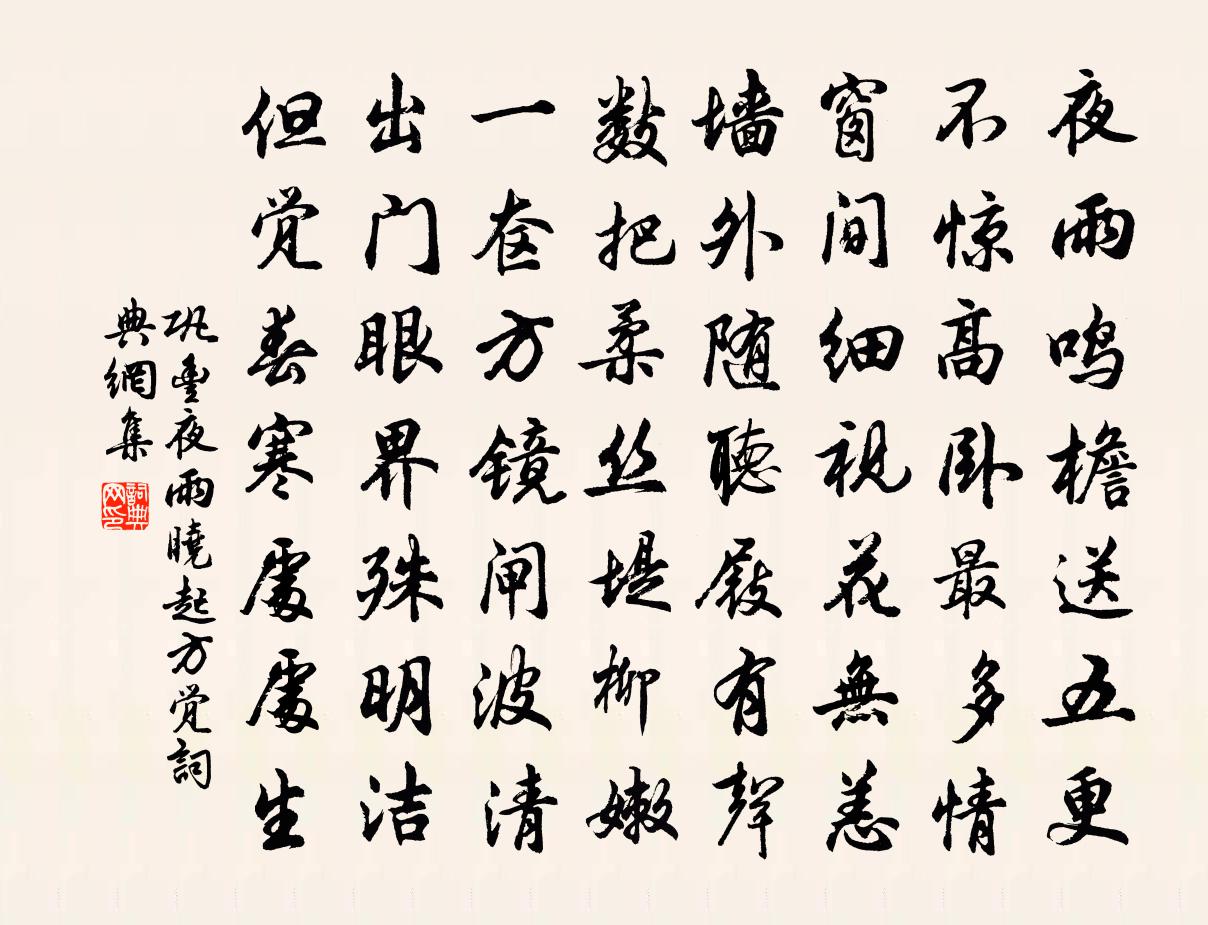 夜雨鸣檐送五更
不惊高卧最多情
窗间细视花無恙
墙外随聽屐有聲
数把柔丝堤柳嫩
一奁方镜闸波清
出门眼界殊明洁
但觉春寒處處生
巩豊夜雨曉起方觉詞
典網集
詞典网印